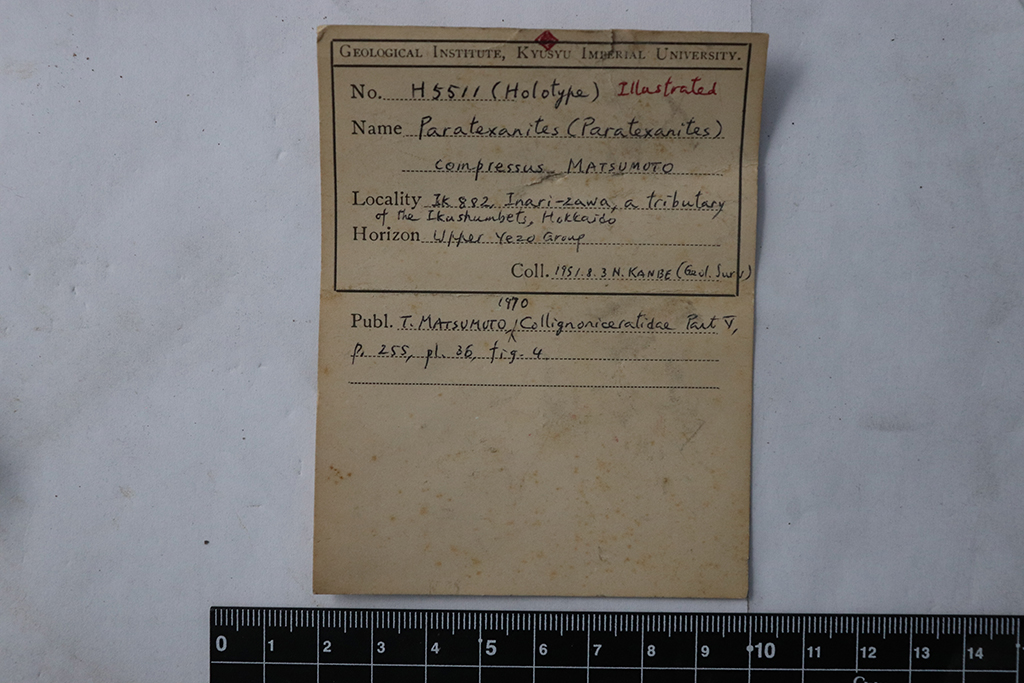 GEOLOGICAL INSTITUTE, KYUSYU IMPERIAL UNIVERSITY.
No. H5511 (Holotype) Illustrated
Name Paratexanites (Paratexanites)
compressus MATSUMOTO
Locality IK 882, Inari-zawa, a tributary
of the Ikushumbets, Hokkaido
Horizon Upper Yezo Group
Coll. 1951.8.3 N. KANBE (Geol. Surv)
1970
Publ. T. MATSUMOTO, Collignoniceratidae Part V,
p. 255, pl. 36, fig. 4
0 1 2 3 4 5 6 7 8 9 10 11 12 13 14